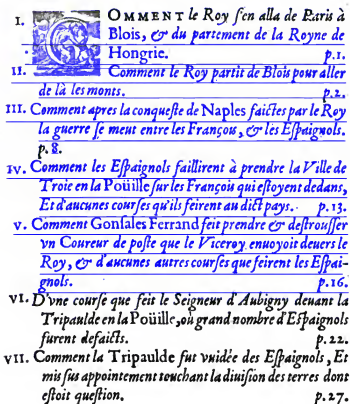 I. COMMENT le Roy s'en alla de Paris à
Blois, & du partement de la Royne de
Hongrie. p.1.
II. Comment le Roy partit de Blois pour aller
de là les monts. p.2.
III. Comment apres la conqueste de Naples faictes par le Roy
la guerre se meut entre les François, & les Espaignols.
p. 8.
IV. Comment les Espaignols faillirent à prendre la Ville de
Troie en la Poüille sur les François qui estoyent dedans,
Et d'aucunes courses qu'ils feirent au dict pays. p. 13.
V. Comment Gonsales Ferrand feit prendre & destrousser
vn Coureur de poste que le Viceroy enuoyoit deuers le
Roy, & d'aucunes autres courses que feirent les Espai-
gnols. p.16.
VI. D'vne course que feit le Seigneur d'Aubigny deuant la
Tripaulde en la Poüille, où grand nombre d'Espaignols
furent defaicts. p.22.
VII. Comment la Tripaulde fut vuidée des Espaignols, Et
mis sus appointement touchant la diuision des terres dont
estoit question. p.27.